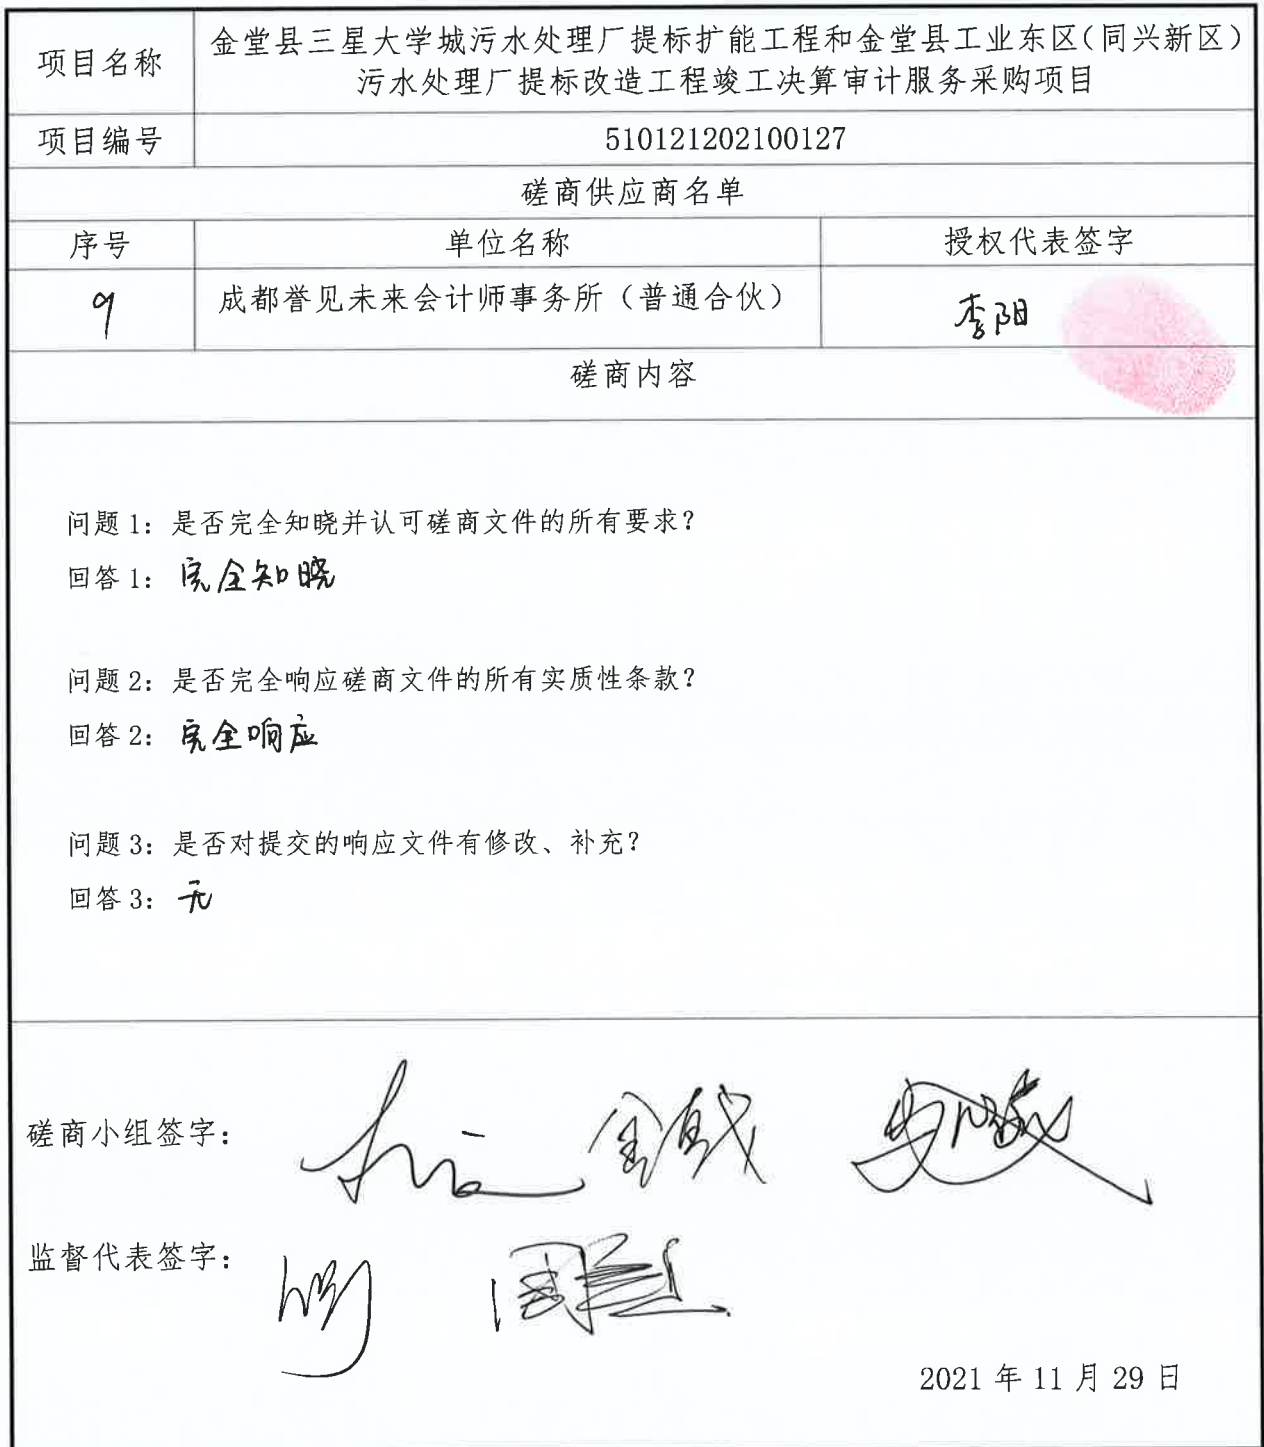 项目名称
金堂县三星大学城污水处理厂提标扩能工程和金堂县工业东区(同兴新区)
污水处理厂提标改造工程竣工决算审计服务采购项目
项目编号
510121202100127
磋商供应商名单
序号 单位名称 授权代表签字
9 成都誉见未来会计师事务所（普通合伙） 李阳
磋商内容
问题 1：是否完全知晓并认可磋商文件的所有要求？
回答 1：完全知晓
问题 2：是否完全响应磋商文件的所有实质性条款？
回答 2：完全响应
问题 3：是否对提交的响应文件有修改、补充？
回答 3：无
磋商小组签字：
监督代表签字：
2021 年 11 月 29 日